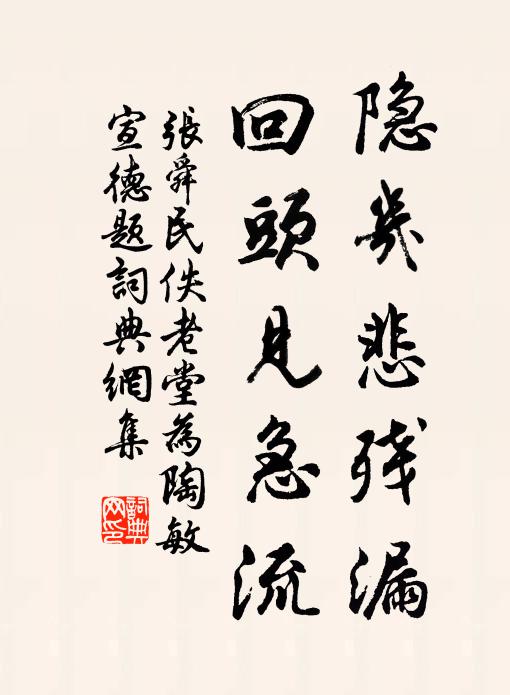 隐几悲残漏
回頭見急流
張舜民佚老堂為陶敏
宣德題詞典網集
詞典网印